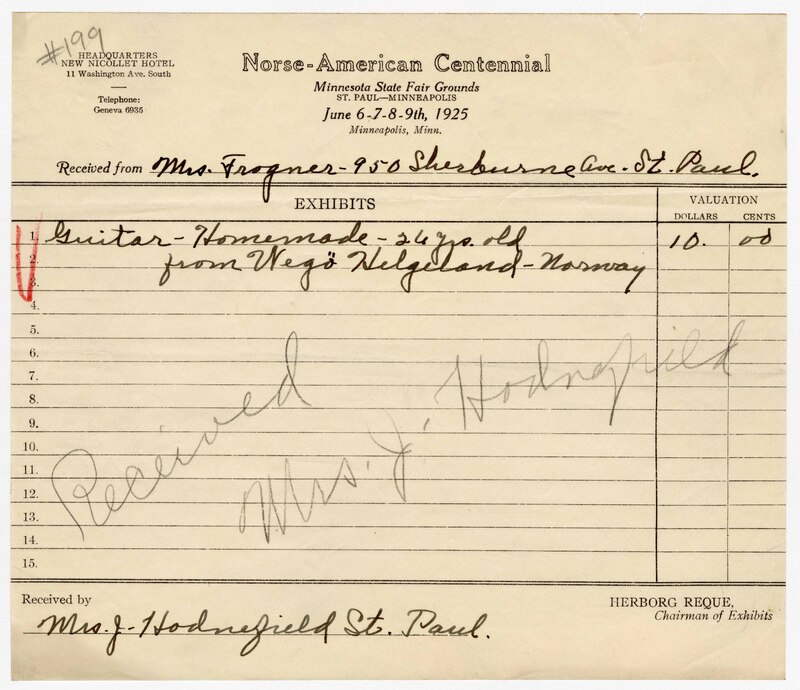 #199
HEADQUARTERS
NEW NICOLLET HOTEL
11 Washington Ave. South
Telephone:
Geneva 6935
Norse-American Centennial
Minnesota State Fair Grounds
ST. PAUL—MINNEAPOLIS
June 6-7-8-9th, 1925
Minneapolis, Minn.
Received from Mrs. Frogner - 950 Sherburne Ave. St. Paul.
EXHIBITS VALUATION
DOLLARS CENTS
1. Guitar - Homemade - 26 yrs. old 10. 00
2. from Wegö Helgeland - Norway
3.
4.
5.
6.
7.
8.
9.
10.
11.
12.
13.
14.
15.
Received
Mrs. J. Hodnefield
Received by
Mrs. J. Hodnefield St. Paul.
HERBORG REQUE,
Chairman of Exhibits